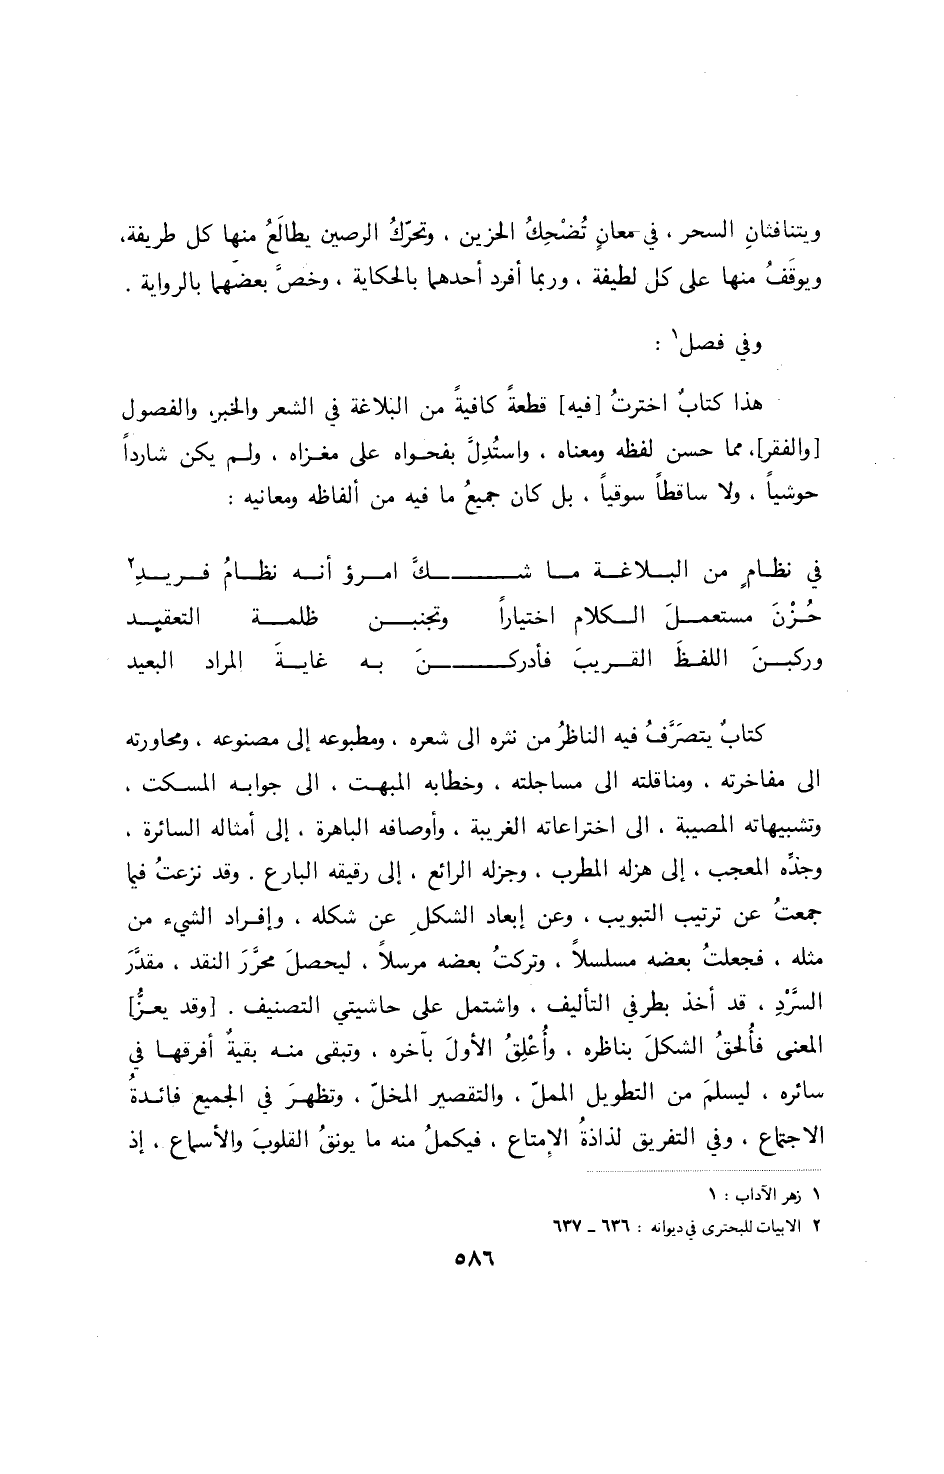 ويتنافثانِ السحر ، في معانٍ تُضْحِكُ الحزين ، وتحرّكُ الرصين يطالَعُ منها كل طريفة،
ويوقَفُ منها على كل لطيفة ، وربما أفرد أحدهما بالحكاية ، وخصَّ بعضَها بالرواية .
وفي فصل١ :
هذا كتابٌ اخترتُ [فيه] قطعةً كافيةً من البلاغة في الشعر والخبر، والفصول
[والفقر]، مما حسن لفظه ومعناه ، واستُدِلَّ بفحواه على مغزاه ، ولم يكن شارداً
حوشياً ، ولا ساقطاً سوقياً ، بل كان جميعُ ما فيه من ألفاظه ومعانيه :
في نظامٍ من البلاغة ما شكَّ امرؤ أنه نظامُ فريدِ٢
حُزْنَ مستعملَ الكلام اختياراً وتجنبن ظلمة التعقيد
وركبنَ اللفظَ القريبَ فأدركنَ به غايةَ المراد البعيد
كتابٌ يتصرَّفُ فيه الناظرُ من نثره الى شعره ، ومطبوعه إلى مصنوعه ، ومحاورته
الى مفاخرته ، ومناقلته الى مساجلته ، وخطابه المبهت ، الى جوابه المسكت ،
وتشبيهاته المصيبة ، الى اختراعاته الغريبة ، وأوصافه الباهرة ، إلى أمثاله السائرة ،
وجدِّه المعجب ، إلى هزله المطرب ، وجزله الرائع ، إلى رقيقه البارع . وقد نزعتُ فيما
جمعتُ عن ترتيب التبويب ، وعن إبعاد الشكل عن شكله ، وإفراد الشيء من
مثله ، فجعلتُ بعضه مسلسلاً ، وتركتُ بعضه مرسلاً ، ليحصلَ محرَّرَ النقد ، مقدَّرَ
السَّرْدِ ، قد أخذ بطرفي التأليف ، واشتمل على حاشيتي التصنيف . [وقد يعزُّ]
المعنى فأُلحقُ الشكلَ بناظره ، وأُعْلِقُ الأولَ بآخره ، وتبقى منه بقيةٌ أفرقها في
سائره ، ليسلمَ من التطويل المملّ ، والتقصير المخلّ ، وتظهرَ في الجميع فائدةُ
الاجتماع ، وفي التفريق لذاذةُ الإمتاع ، فيكملُ منه ما يونقُ القلوبَ والأسماع ، إذ
١ زهر الآداب : ١
٢ الابيات للبحتري في ديوانه : ٦٣٦ – ٦٣٧
٥٨٦